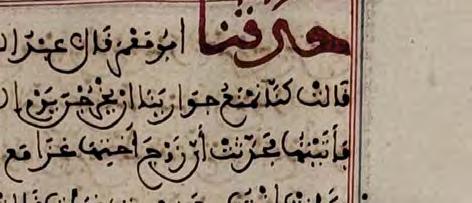 حدثنا ابو معمر قال عبد ال
قالت كنا نمنع جوارينا ان يخرجن يوم ال
فأتيتها فحدثت أن زوج أختها غزا مع